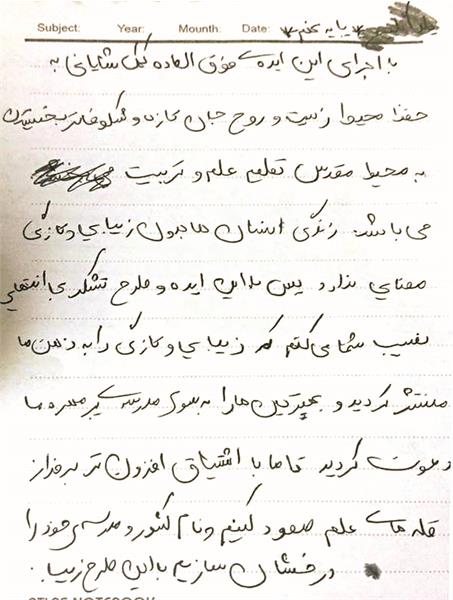 Subject: Year: Mounth: Date: پایه نهم
با اجرای این ایده ی فوق العاده کمک شایانی به
حفظ محیط زیست و روح جان تازه و شکوفاتر بخشیدن
به محیط مقدس تعلیم علم و تربیت
می باشد. زندگی انسان ها بدون زیبایی و تازگی
معنایی ندارد پس با این ایده و طرح تشکر بی انتهایی
نصیب شما می کنم که زیبایی و تازگی را به ذهن ما
منتشر کردید و بهترین ما را به سوی مدرسه ی پر مهره ما
دعوت کردید تا ما با اشتیاق افزون تر بر فراز
قله های علم صعود کنیم و نام کشور و مدرسه ی خود را
درخشان سازیم با این طرح زیبا.